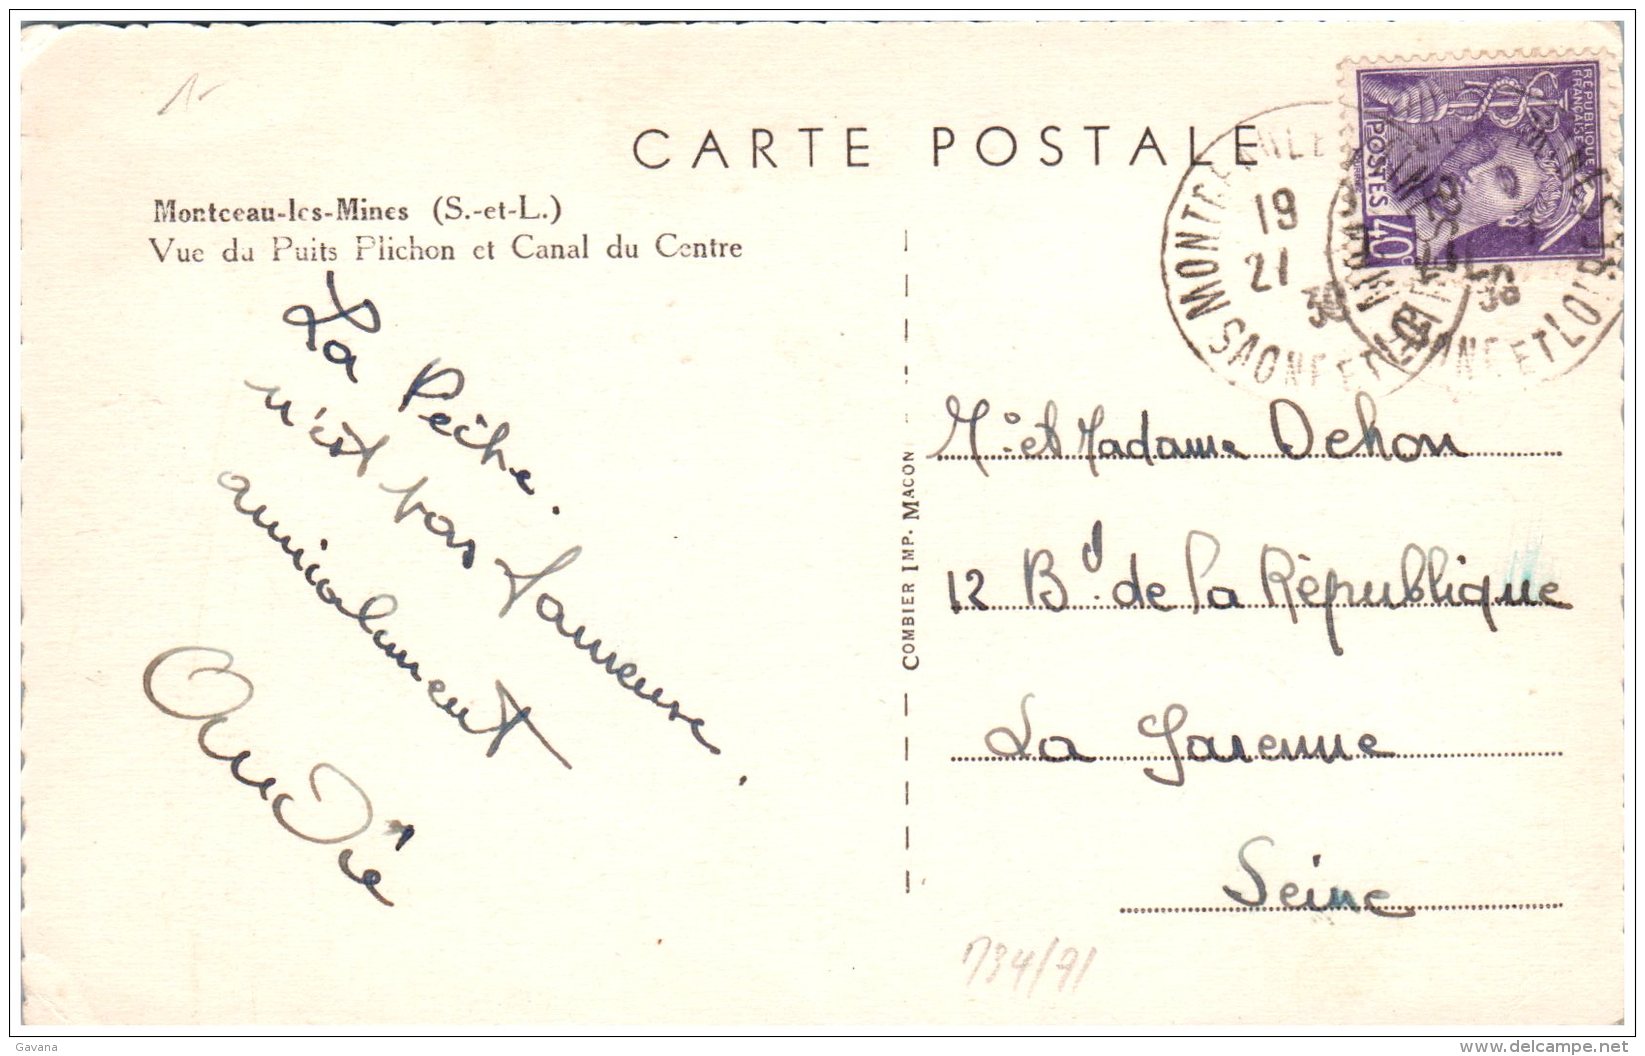 CARTE POSTALE
Montceau-les-Mines (S.-et-L.)
Vue du Puits Plichon et Canal du Centre
La Pêche
n'est pas fameuse.
amicalement
Andrée
COMBIER IMP. MACON
REPUBLIQUE
FRANÇAISE
POSTES 40c
19
21
38
SAONE ET LOIRE
Mr et Madame Dehon
12 Bd. de la République
La Garenne
Seine
734/91
Gavana
delcampe.net